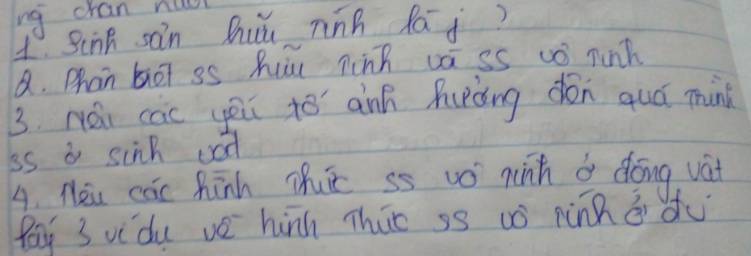 ng chăn nuôi
1. Sinh sản hữu tính là j ?
2. Phân biệt ss hữu tính và ss vô tính
3. Nêu các yếu tố ảnh hưởng đến quá trình
ss ở sinh vật
4. Nêu các hình thức ss vô tính ở động vật
lấy 3 ví dụ về hình thức ss vô tính ở đv